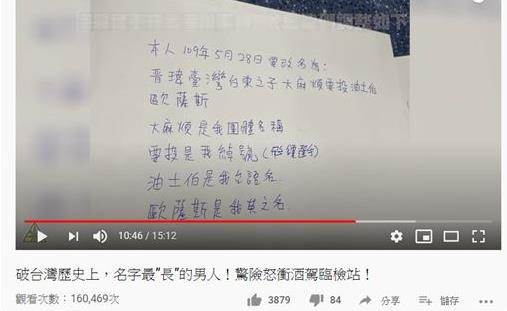 本人109年5月28日更改名為:
晋瑋臺灣台東之子大麻煩電投油士伯
歐薩斯
大麻煩是我團體名稱
電投是我綽號
油士伯是我台語名
歐薩斯是我英文名
10:46 / 15:12
破台灣歷史上，名字最"長"的男人！驚險怒衝酒駕臨檢站！
觀看次數：160,469次
3879
84
分享
儲存